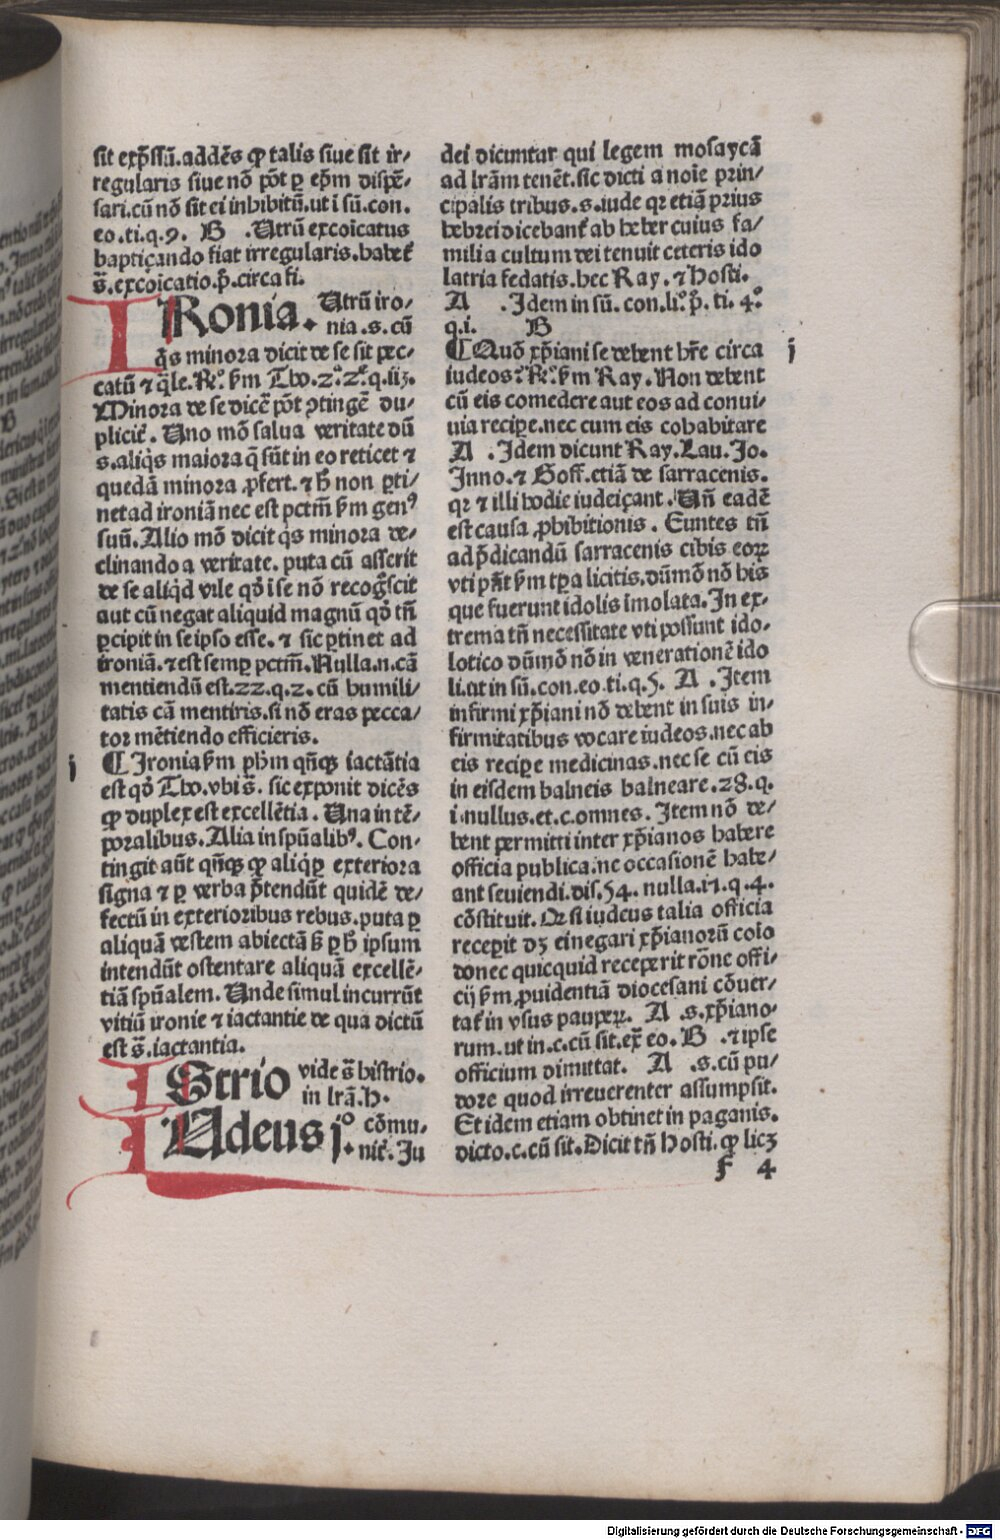 sit exp̄ssū.addēs ꝙ talis siue sit ir/
regularis siue nō pōt ꝑ ep̄m dispē/
sari.cū nō sit ei inhibitū.ut i sū.con.
eo.ti.q.9. B .Utrū excōicatus
baptiçando fiat irregularis.habet̄
s̄.excōicatio.p̄.circa fi.
IRonia. Utrū iro/
nia .s. cū
q̄s minora dicit de se sit pec/
catū ⁊ q̄le. Rº. ẜm Tho.2ª.2ᵉ.q.iiȝ.
Minora de se dicē pōt ꝯtingē du/
plicit̄. Uno mō salua veritate dū
s.aliq̄s maiora q̄ sūt in eo reticet ⁊
quedā minora ꝓfert. ⁊ h̄ non ꝑti/
net ad ironiā nec est pctm̄ ẜm genꝰ
suū. Alio mō dicit q̄s minora de/
clinando a veritate. puta cū asserit
de se aliq̄d vile qð i se nō recog̅scit
aut cū negat aliquid magnū qð tn̄
ꝑcipit in seipso esse. ⁊ sic ꝑtinet ad
ironiā. ⁊ est semꝑ pctm̄. Nulla.n.cā
mentiendū est.22.q.2. cū humili/
tatis cā mentiris.si nō eras pecca/
tor mētiendo efficieris.
i
¶ Ironia ẜm pħm qn̄qꝫ iactātia
est qð Tho. vbi s̄. sic exponit dicēs
ꝙ duplex est excellētia. Una in tē/
poralibus. Alia in spūalibꝰ. Con/
tingit aūt qn̄qꝫ ꝙ aliq̄s ꝑ exteriora
signa ⁊ ꝑ verba p̄tendūt quidē de/
fectū in exterioribus rebus. puta ꝑ
aliquā vestem abiectā ß ꝑ h̄ ipsum
intendūt ostentare aliquā excellē/
tiā spūalem. Unde simul incurrūt
vitiū ironie ⁊ iactantie de qua dictū
est s̄. iactantia.
IStrio vide s̄ histrio.
in lrā.h.
IUdeus jº. cōmu.
nit̄. Ju
dei dicuntar qui legem mosaycā
ad lrām tenēt.sic dicti a noīe prin/
cipalis tribus.s.iude qr etiā prius
hebrei dicebant̄ ab heber cuius fa/
milia cultum dei tenuit ceteris ido
latria fedatis. hec Ray. ⁊ Hosti.
A .Idem in sū. con.li°.p̄. ti. 4°.
q.i. B
¶ Quō xp̄iani se debent hr̄e circa
i
iudeos? Rº. ẜm Ray. Non debent
cū eis comedere aut eos ad conui/
uia recipe.nec cum eis cohabitare
A . Idem dicunt Ray. Lau. Jo.
Inno. ⁊ Goff. etiā de sarracenis.
qr ⁊ illi hodie iudeiçant. Un̄ eadē
est causa ꝓhibitionis. Euntes tn̄
ad p̄dicandū sarracenis cibis eoꝝ
vti p̄nt ẜm tp̄a licitis.dūmō nō his
que fuerunt idolis imolata. In ex/
trema tn̄ necessitate vti possunt ido/
lotico dūmō nō in venerationē ido
li.ut in sū.con.eo.ti.q.5. A . Item
infirmi xp̄iani nō debent in suis in/
firmitatibus vocare iudeos.nec ab
eis recipe medicinas.nec se cū eis
in eisdem balneis balneare. 28. q.
i.nullus.et.c.omnes. Item nō de/
bent permitti inter xp̄ianos habere
officia publica.ne occasionē habe/
ant seuiendi.dis.54. nulla.17.q.4.
cōstituit. Qr si iudeus talia officia
receperit dȝ ei negari xp̄ianorū cōio
donec quicquid receperit rōne offi/
cij ẜm ꝓuidentiā diocesani cōuer/
tat̄ in vsus pauperꝝ. A .s. xp̄iano/
rum. ut in.c.cū sit.ex̄ eo. B . ⁊ ipse
officium dimittat. A .s. cū pu/
dore quod irreuerenter assumpsit.
Et idem etiam obtinet in paganis.
dicto.c.cū sit. Dicit tn̄ Hosti. ꝙ licȝ
f 4
Digitalisierung gefördert durch die Deutsche Forschungsgemeinschaft - DFG